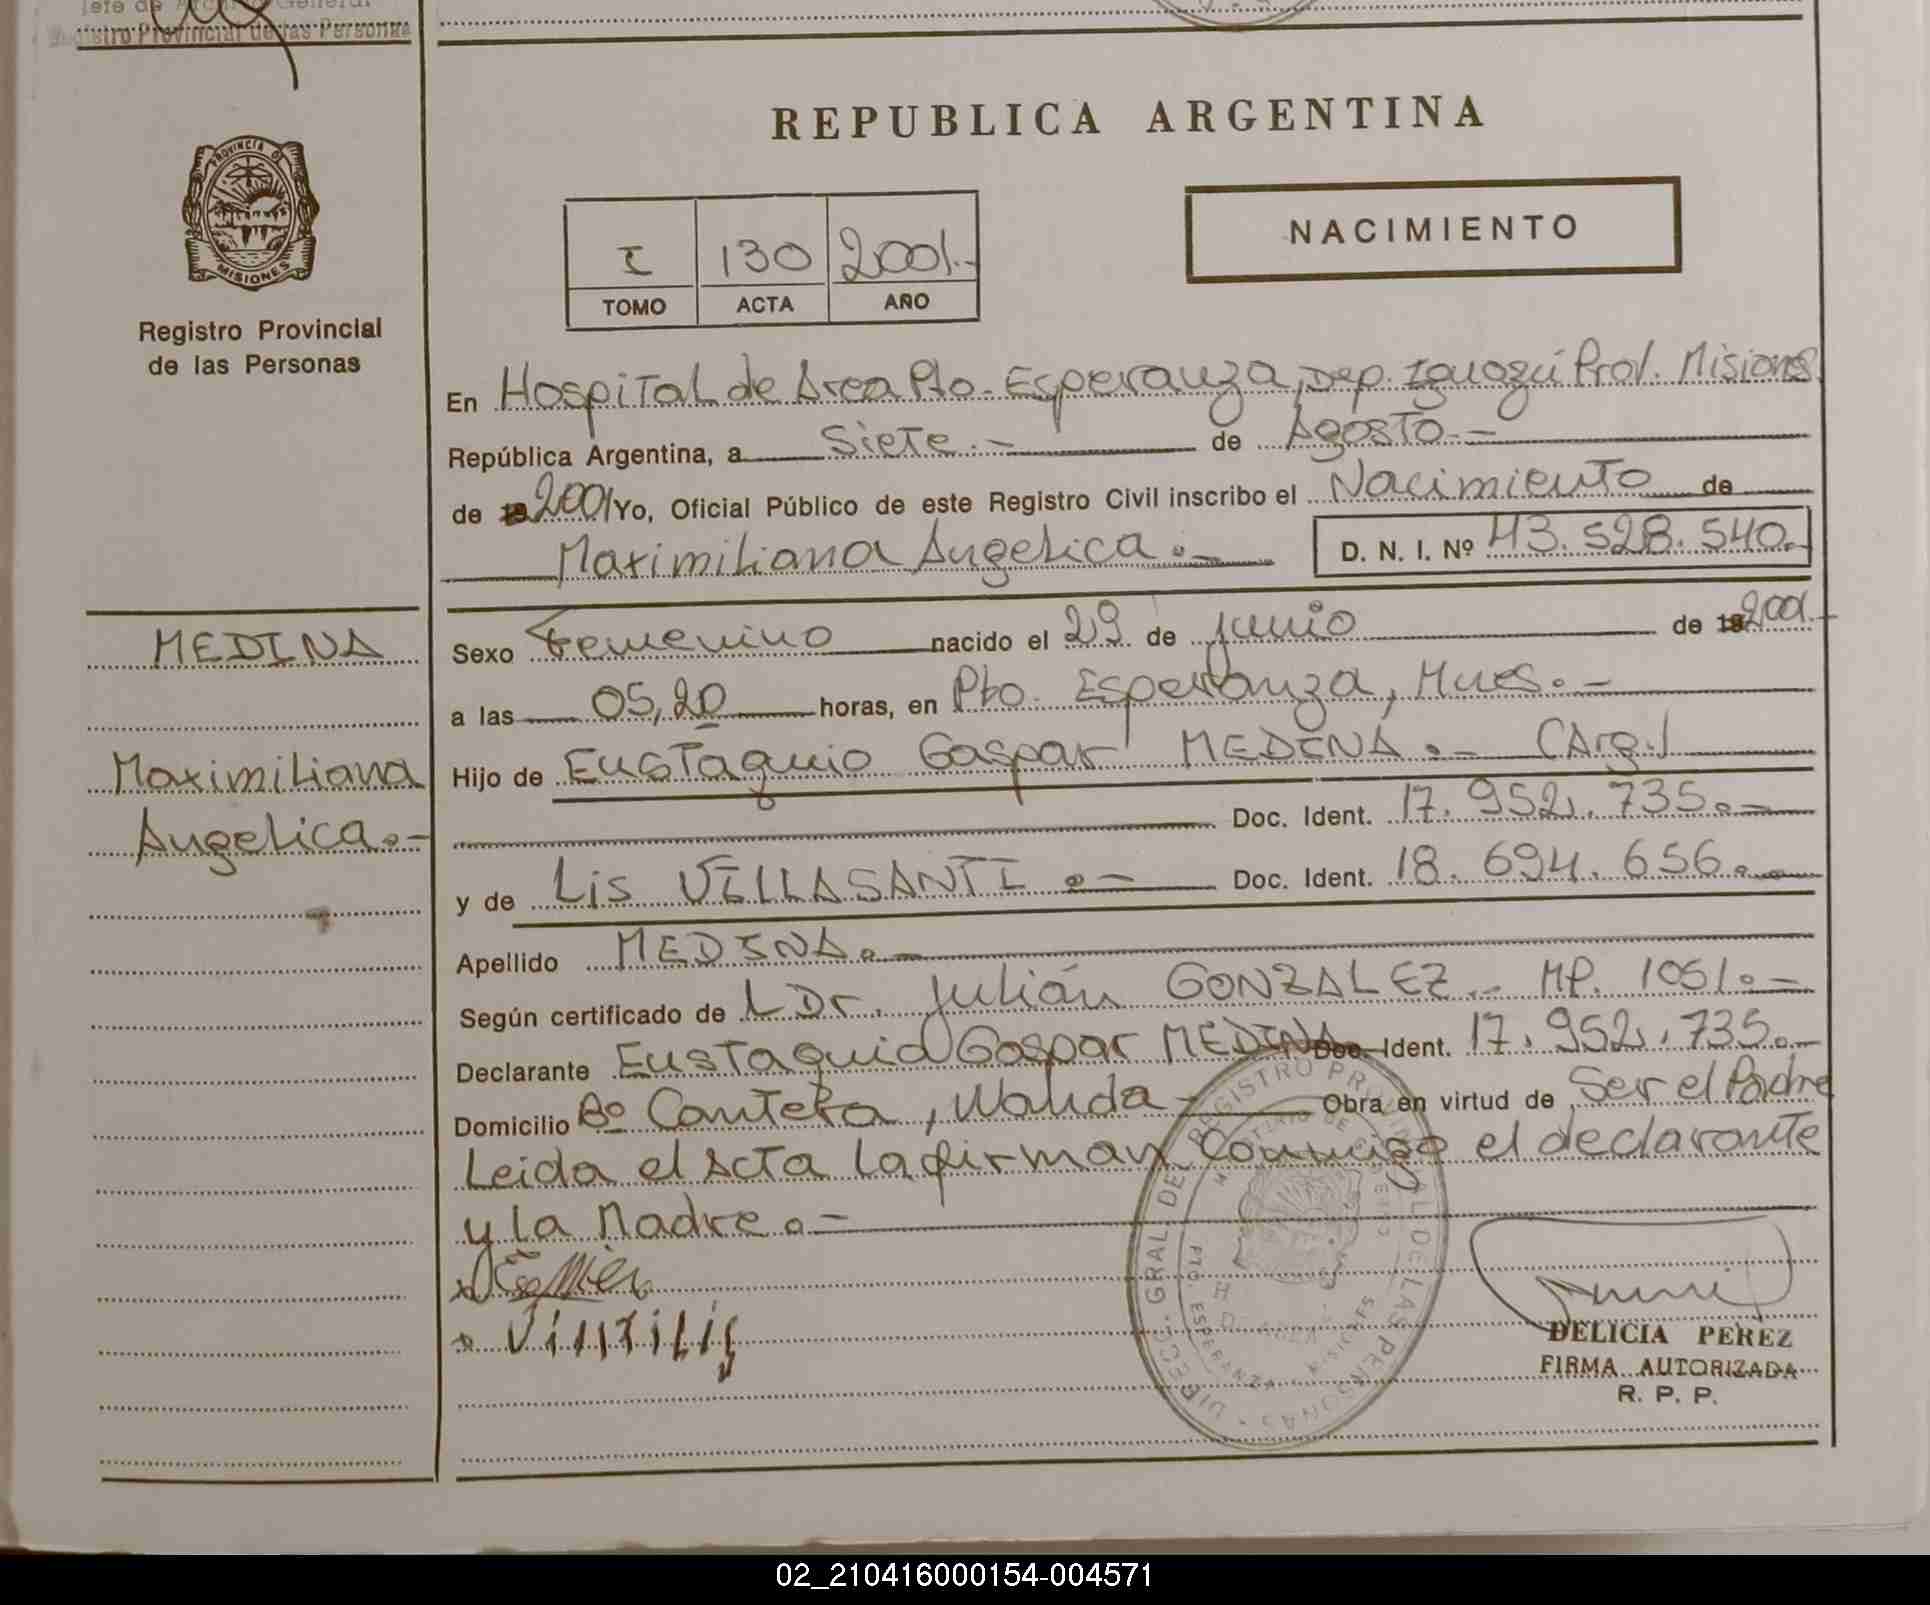 Jefe de Archivo General
Registro Provincial de las Personas
PROVINCIA DE
MISIONES
Registro Provincial
de las Personas
REPUBLICA ARGENTINA
I 130 2001.-
TOMO ACTA AÑO
NACIMIENTO
En Hospital de Area Pto. Esperanza, Dep. Iguazú Prov. Misiones
República Argentina, a Siete.- de Agosto.-
de 19 2001 Yo, Oficial Público de este Registro Civil inscribo el Nacimiento de
Maximiliana Angelica.- D. N. I. Nº 43.528.540.-
MEDINA
Maximiliana
Angelica.-
Sexo Femenino nacido el 29 de junio de 19 2001.-
a las 05,20 horas, en Pto. Esperanza, Mnes.-
Hijo de Eustaquio Gaspar MEDINA.- (Arg.)
Doc. Ident. 17.952.735.-
y de Lis VILLASANTI.- Doc. Ident. 18.694.656.-
Apellido MEDINA.-
Según certificado de Dr. Julián GONZALEZ.- MP. 1051.-
Declarante Eustaquio Gaspar MEDINA Doc. Ident. 17.952.735.-
Domicilio Bº Cantera, Wanda.- Obra en virtud de Ser el Padre
Leida el Acta la firman conmigo el declarante
y la Madre.-
DIRECC. GRAL. DEL REGISTRO PROVINCIAL DE LAS PERSONAS
PTO. ESPERANZA - MISIONES
DELICIA PEREZ
FIRMA AUTORIZADA
R. P. P.
02_210416000154-004571